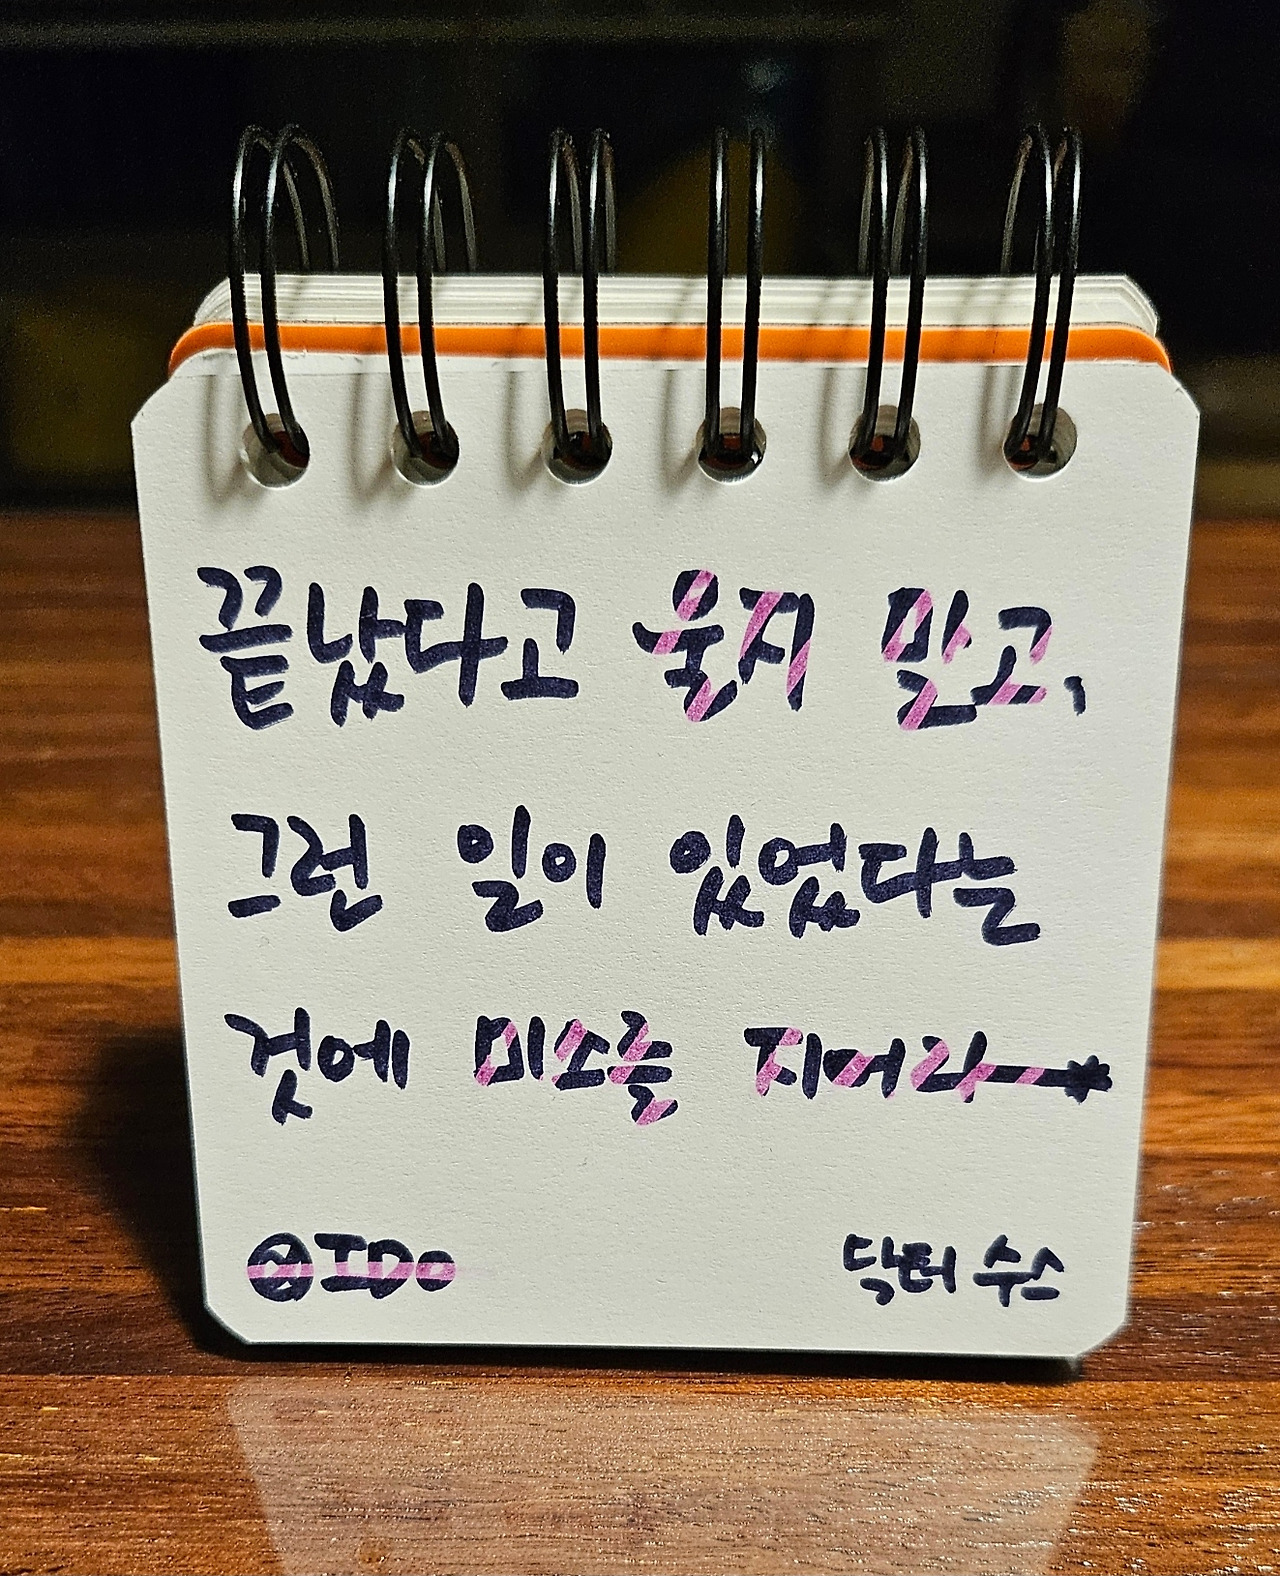 끝났다고 울지 말고,
그런 일이 있었다는
것에 미소를 지어라
IDo
닥터 수스